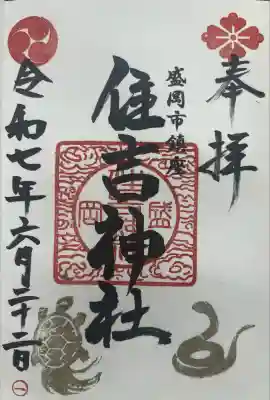 奉拝
盛岡市鎮座
住吉神社
令和七年六月二十二日